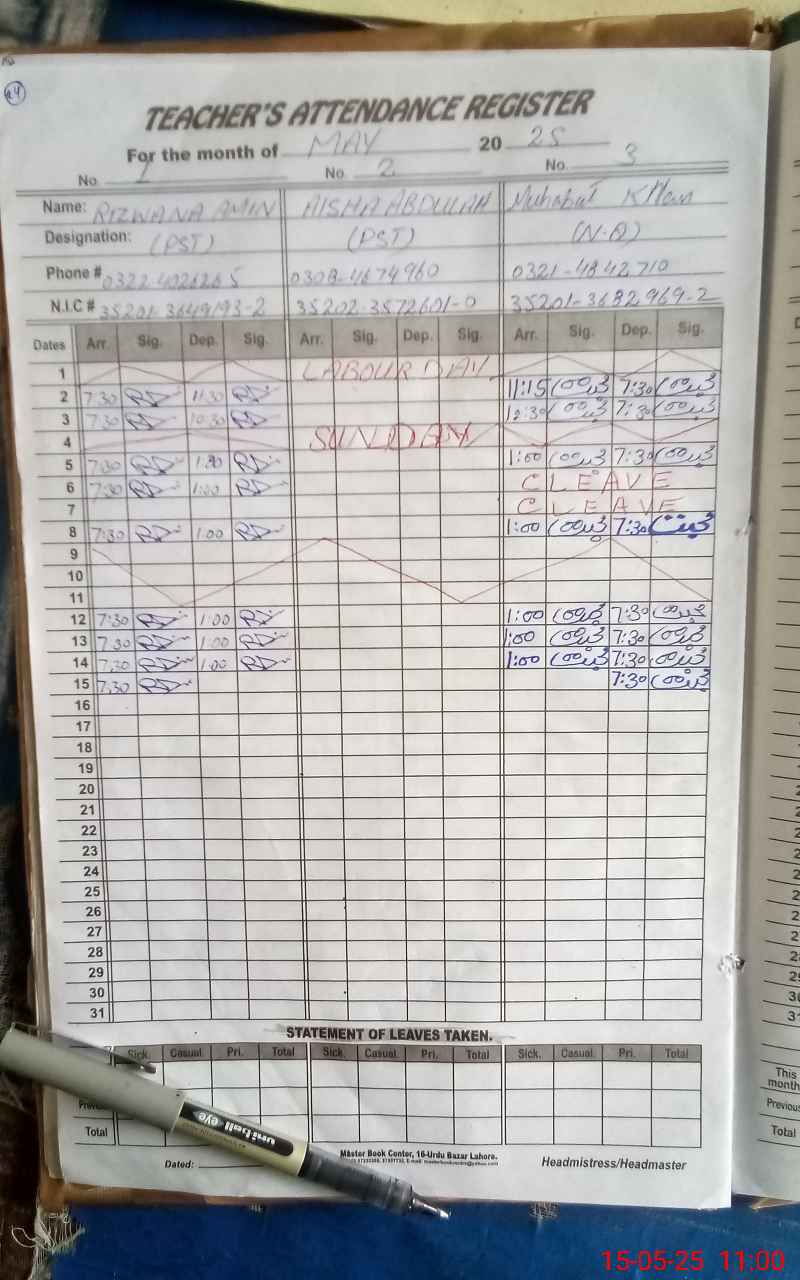 24
TEACHER'S ATTENDANCE REGISTER
For the month of MAY 20 25
No. 1 No. 2 No. 3
Name: RIZWANA AMIN AISHA ABDULAH Muhabat Khan
Designation: (PST) (PST) (N-Q)
Phone # 0322 4026265 0308-4674960 0321-4842710
N.I.C # 35201-3649193-2 35202-3572601-0 35201-3682969-2
Dates Arr. Sig. Dep. Sig. Arr. Sig. Dep. Sig. Arr. Sig. Dep. Sig.
1 LABOUR DAY
2 7:30 11:30 11:15 7:30
3 7:30 10:30 7:30
4 SUNDAY
5 7:30 1:00 7:30
6 7:30 1:00 C LEAVE
7 C LEAVE
8 7:30 1:00 1:00 7:30
9
10
11
12 7:30 1:00 1:00 7:30
13 7:30 1:00 1:00 7:30
14 7:30 1:00 1:00 7:30
15 7:30 7:30
16
17
18
19
20
21
22
23
24
25
26
27
28
29
30
31
STATEMENT OF LEAVES TAKEN.
Sick. Casual. Pri. Total Sick. Casual. Pri. Total Sick. Casual. Pri. Total
Total
Dated:
Master Book Center, 16-Urdu Bazar Lahore.
Headmistress/Headmaster
uni-ball eye
This month
Previous
Total
15-05-25 11:00